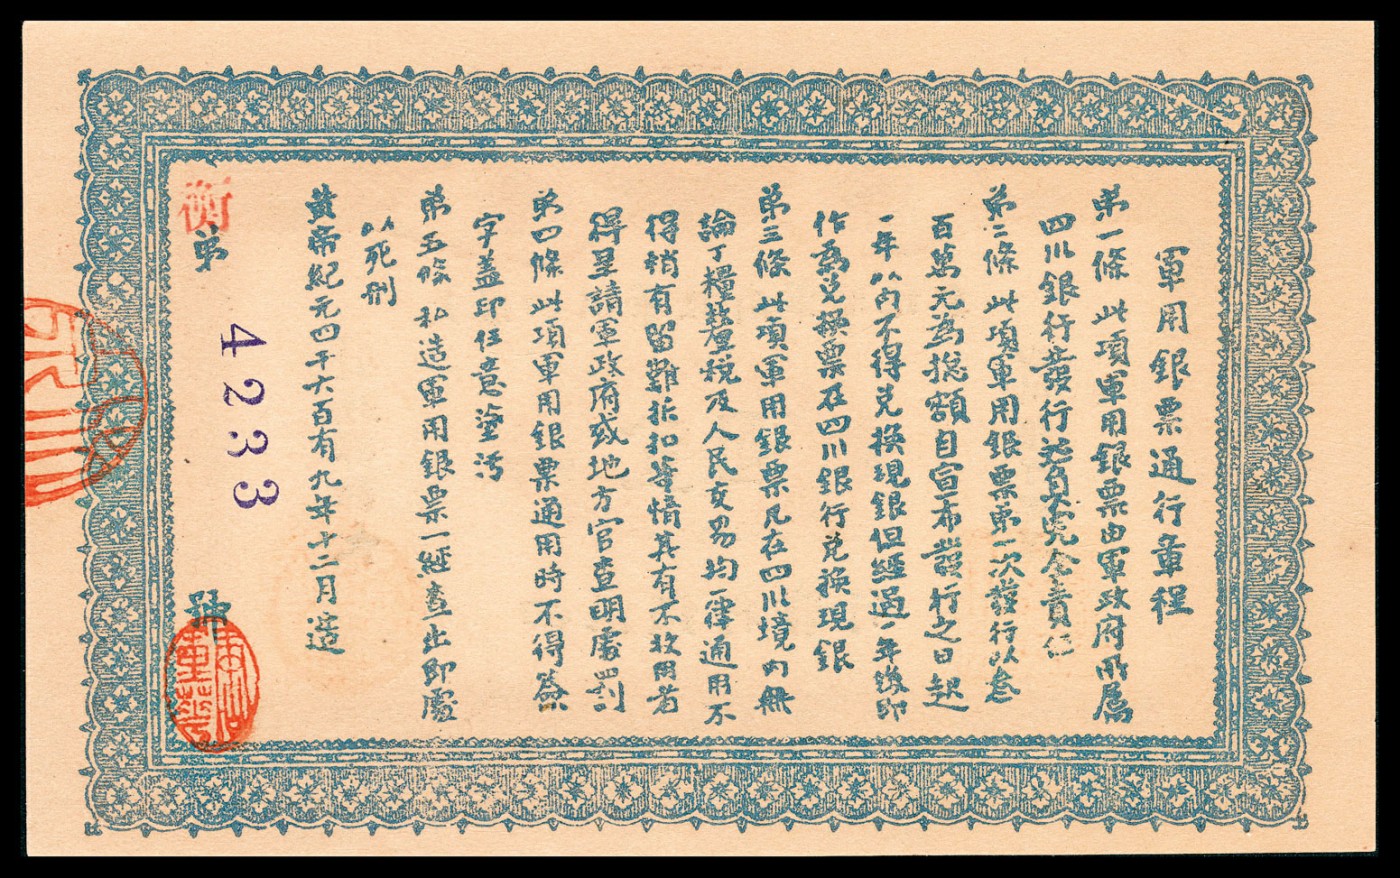 軍用銀票通行章程
第一條 此項軍用銀票由軍政府所屬
四川銀行發行並負完全責任
第二條 此項軍用銀票第一次發行以叁
百萬元為總額自宣布發行之日起
一年以內不得兌換現銀但經過一年後即
作為兌換票在四川銀行兌換現銀
第三條 此項軍用銀票凡在四川境內無
論丁糧釐稅及人民交易均一律通用不
得稍有留難折扣等情其有不收用者
得呈請軍政府或地方官查明處罰
第四條 此項軍用銀票通用時不得簽
字蓋印任意塗污
第五條 私造軍用銀票一經查出即處
以死刑
黃帝紀元四千六百有九年十二月造
衡
第 4233 號